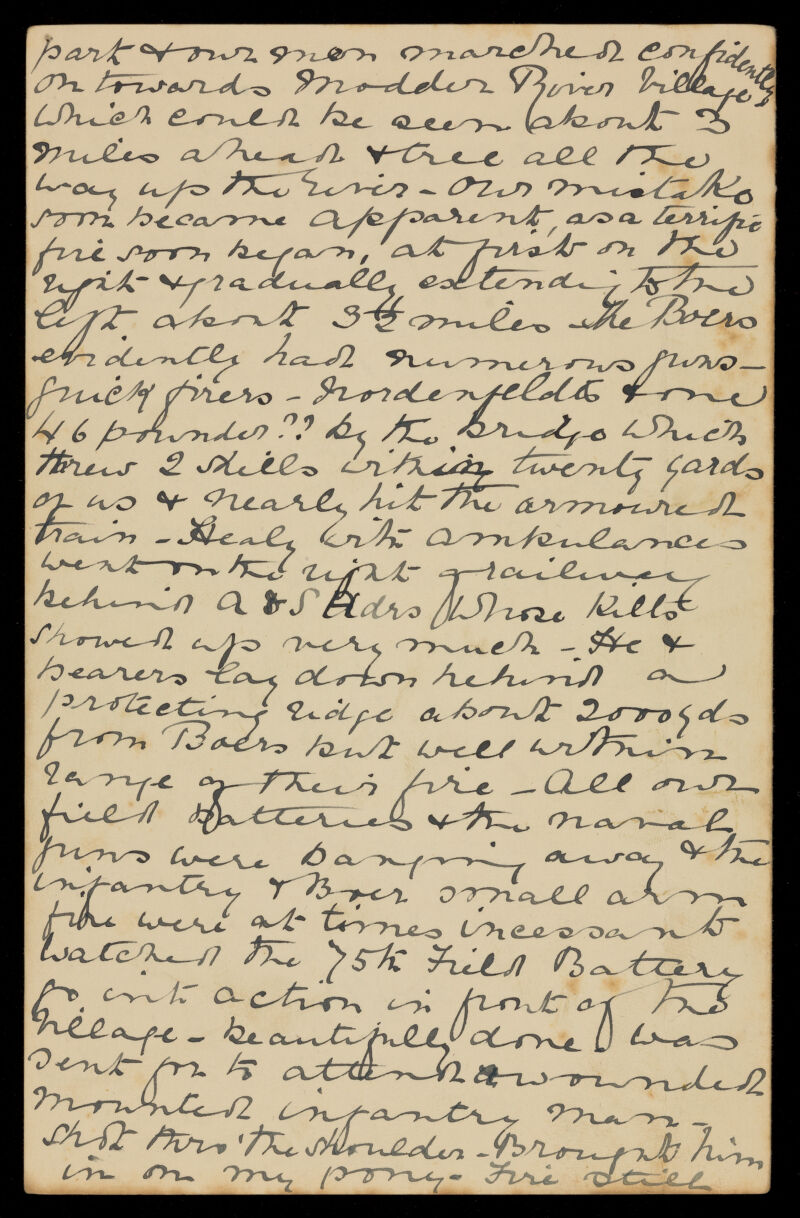 part & our men marched confidently
on towards Modder River Village
which could be seen about 3
miles ahead & tree all the
way up the river - Our mistake
soon became apparent, as a terrific
fire soon began, at first on the
right & gradually extending to the
left about 3½ miles - The Boers
evidently had numerous guns -
quick firers - Nordenfeldts & one
46 pounder?? by the bridge which
threw 2 shells within twenty yards
of us & nearly hit the armoured
train - Healy with ambulances
went on the right of railway
behind A & S Hdrs whose Kilts
showed up very much - He &
bearers lay down behind a
protecting ridge about 2000 yds
from Boers but well within
range of their fire - All our
field batteries & the naval
guns were banging away & the
infantry & Boer small arm
fire were at times incessant
watched the 75th Field Battery
go into action in front of the
village - beautifully done. was
sent for to attend a wounded
mounted infantry man -
shot thro' the shoulder - Brought him
in on my pony - Fire still